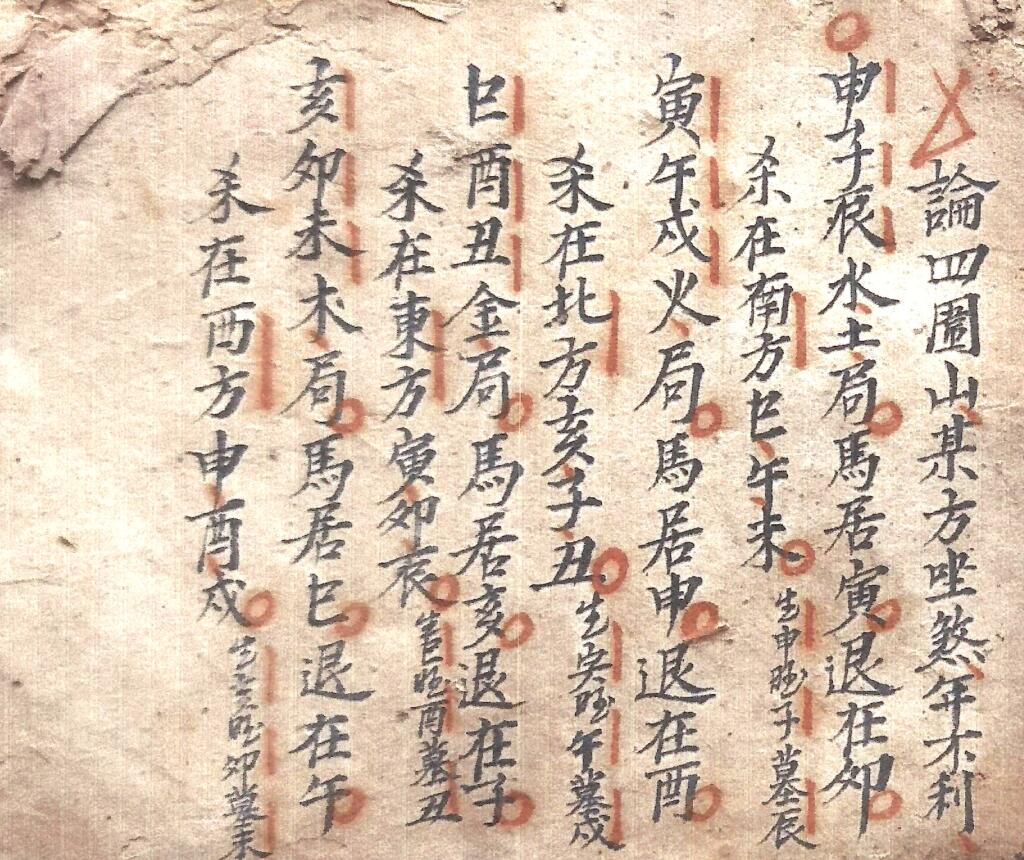 論四圍山某方坐煞年不利
申子辰水土局馬居寅退在卯
杀在南方巳午未 生申旺子墓辰
寅午戌火局馬居申退在酉
杀在北方亥子丑 生寅旺午墓戌
巳酉丑金局馬居亥退在子
杀在東方寅卯辰 生巳旺酉墓丑
亥卯未木局馬居巳退在午
杀在西方申酉戌 生亥旺卯墓未